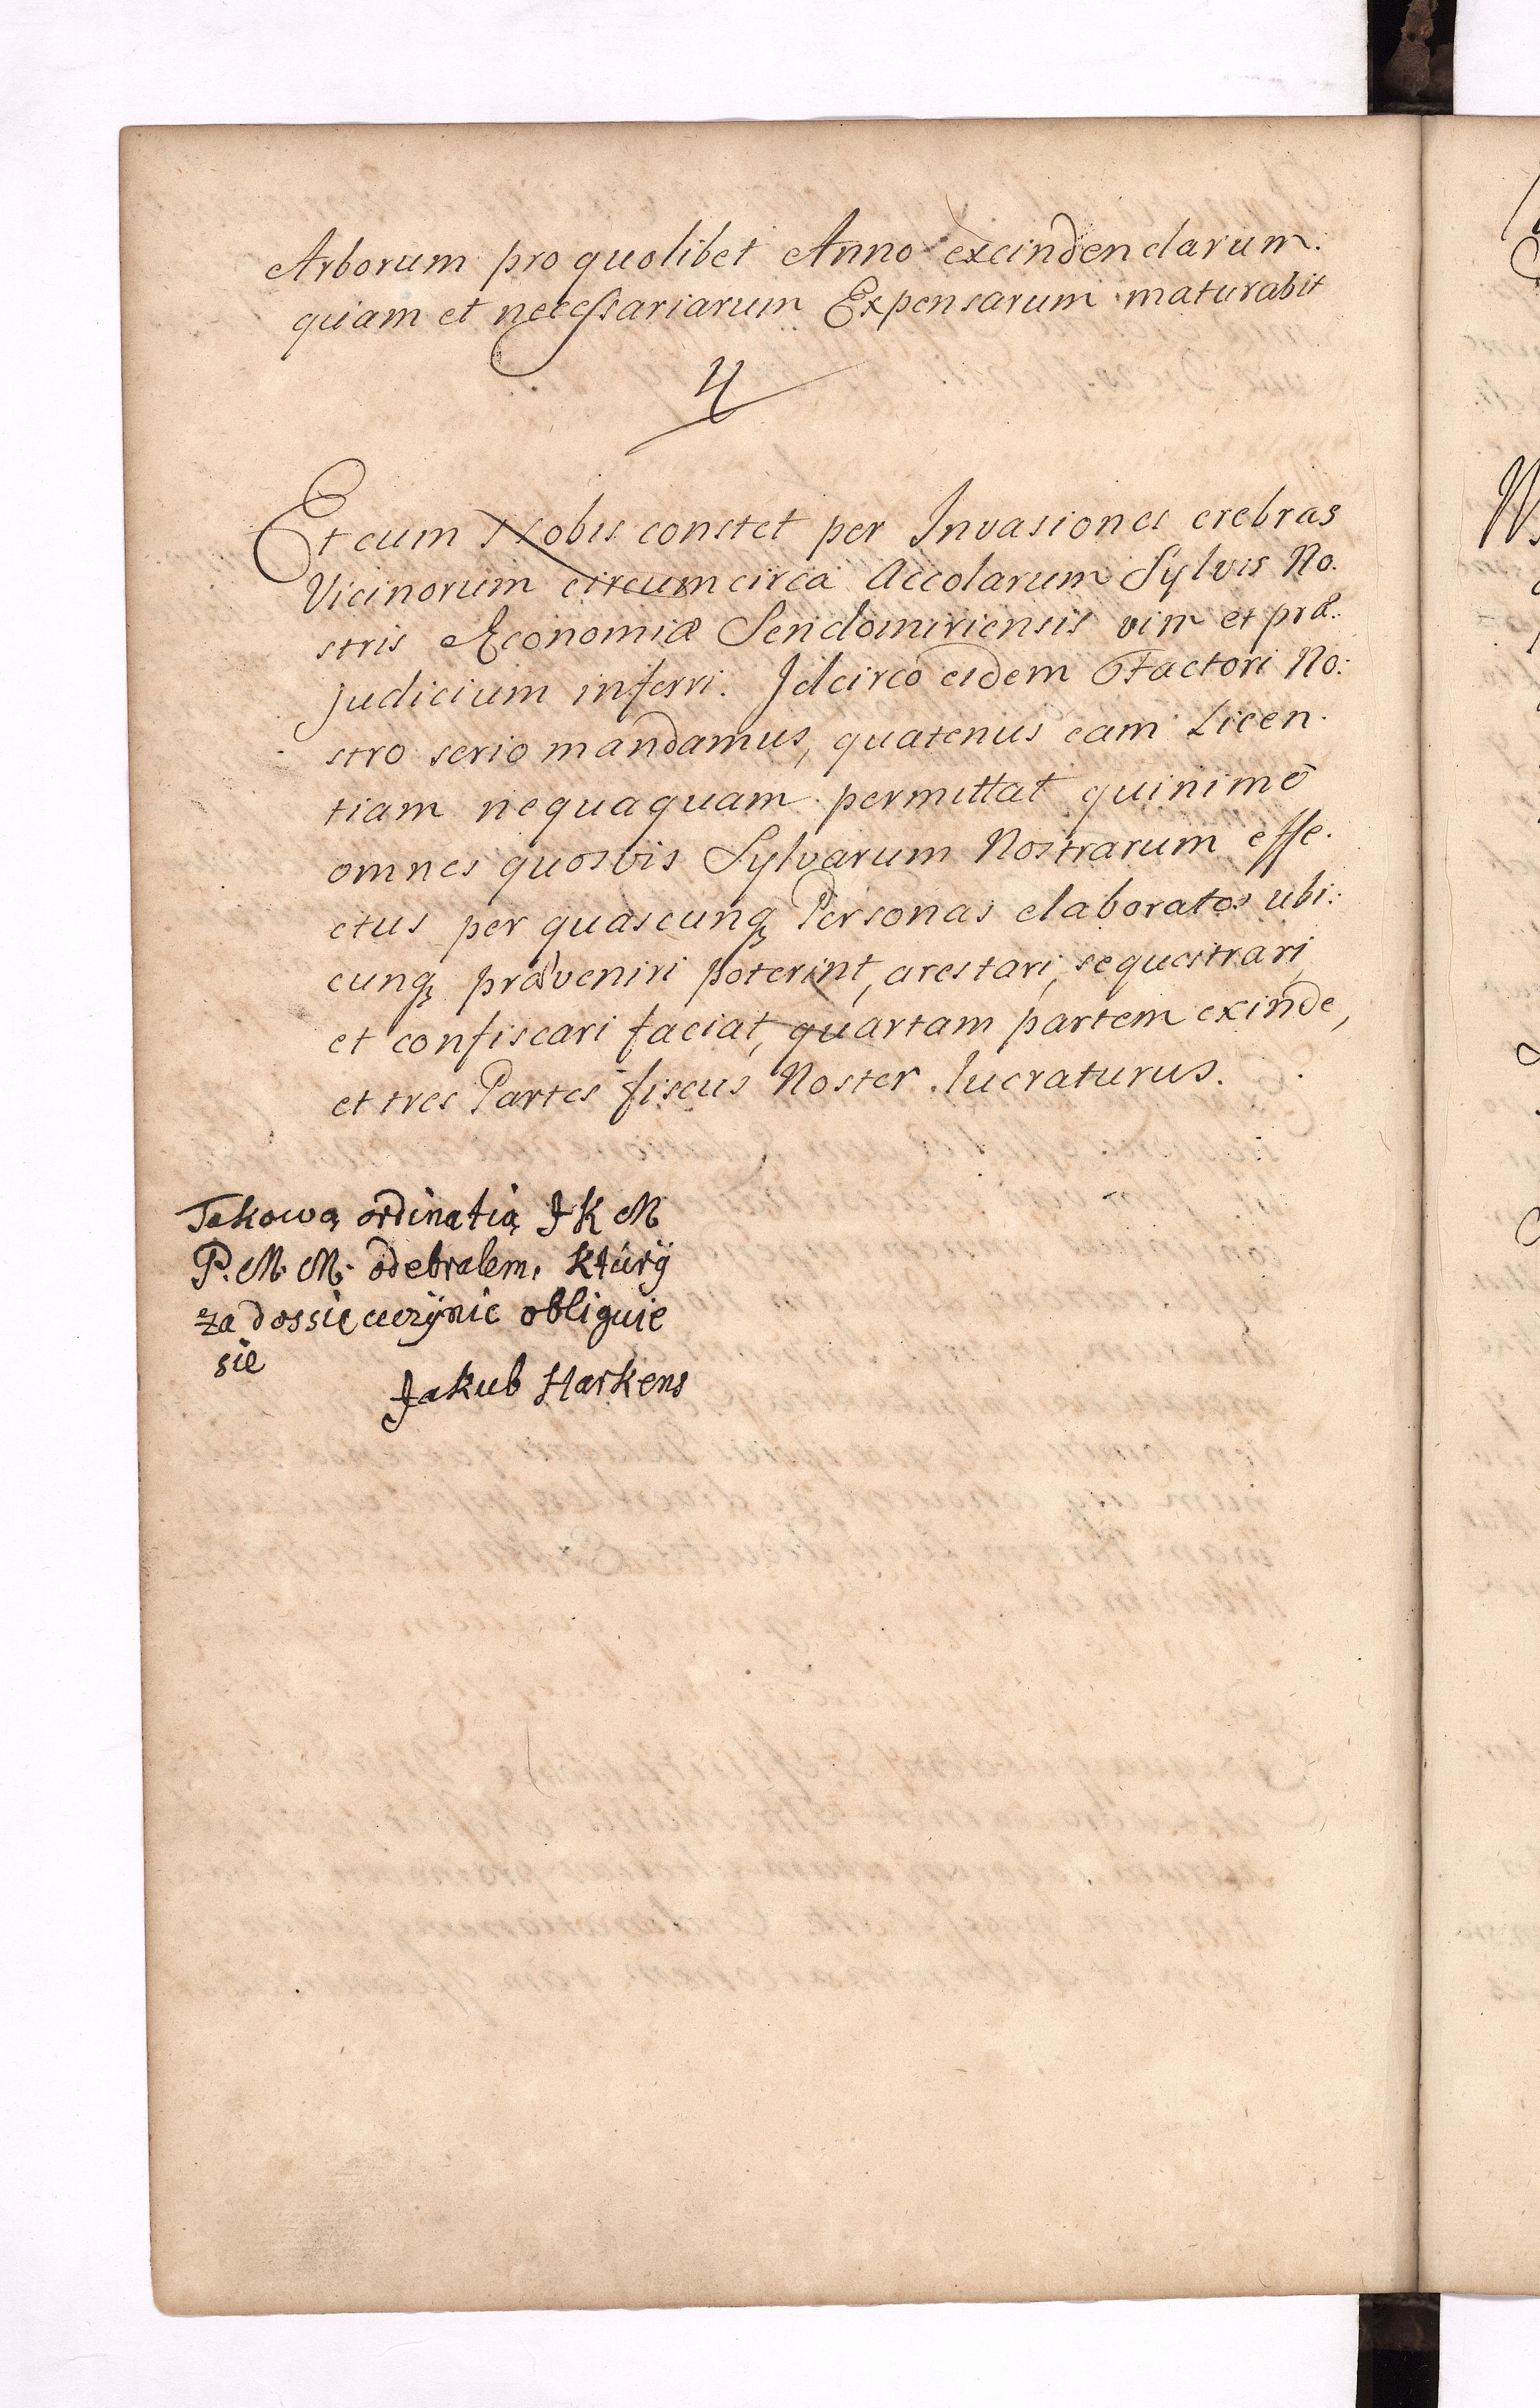 Arborum pro quolibet Anno excindendarum.
quam et necessariarum Expensarum maturabit
4
Et cum Nobis constet per Invasiones crebras
Vicinorum circumcirca Accolarum Sylvis No.
stris Æconomiæ Sendomiriensis vim et præ:
judicium inferri. Idcirco eidem Factori No:
stro serio mandamus, quatenus eam Licen.
tiam nequaquam permittat quinimo
omnes quosvis Sylvarum Nostrarum effe.
ctus per quascunq Personas elaboratos ubi:
cunq præveniri poterint, arestari, sequestrari,
et confiscari faciat, quartam partem exinde,
et tres Partes fiscus Noster lucraturus.
Takową ordinatią J K M
P. M. M. odebralem, ktúrÿ
za dossic uczÿnic obliguie
sie
Jakub Harkens